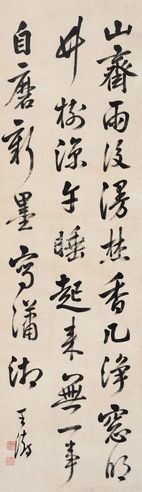 山齋雨後漫焚香几淨窗明
竹樹涼午睡起來無一事
自磨新墨寫瀟湘
王澍